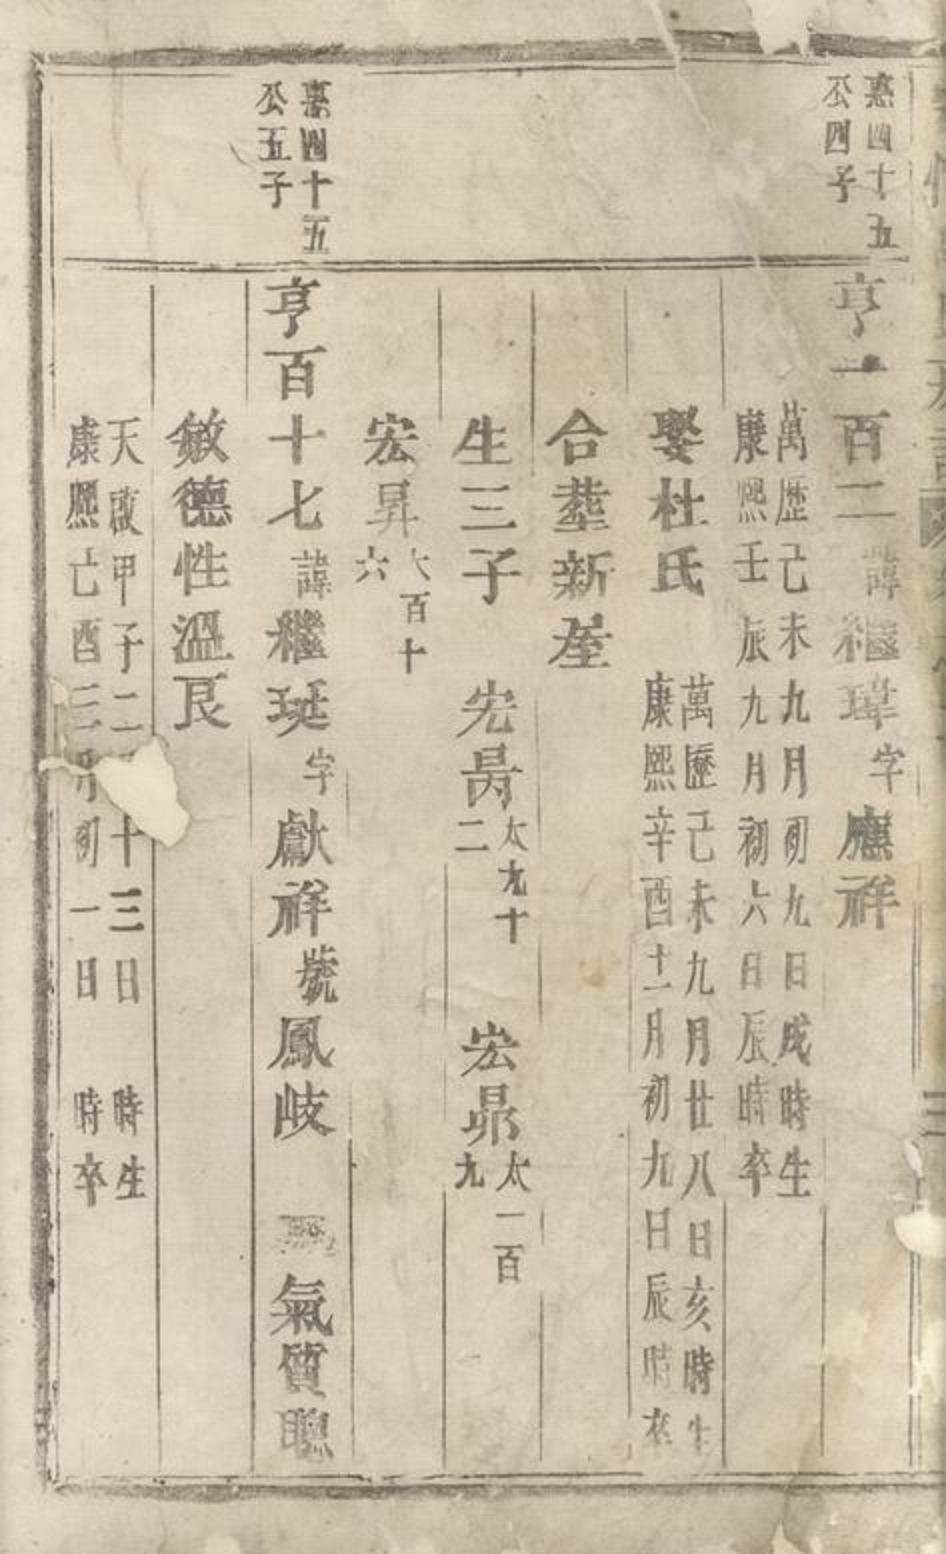 惠四十五
公四子
亨一百二諱繼瑋字應祥
萬歷己未九月初九日戌時生
康熙壬辰九月初六日辰時卒
娶杜氏
萬歷己未九月廿八日亥時生
康熙辛酉十二月初九日辰時卒
合葬新屋
生三子 宏昺太九十二 宏昴太一百九
宏昇太百十六
惠四十五
公五子
亨百十七諱繼珽字獻祥號鳳岐 氣質聰
敏德性溫良
天啟甲子二月十三日 時生
康熙亡酉三月初一日 時卒